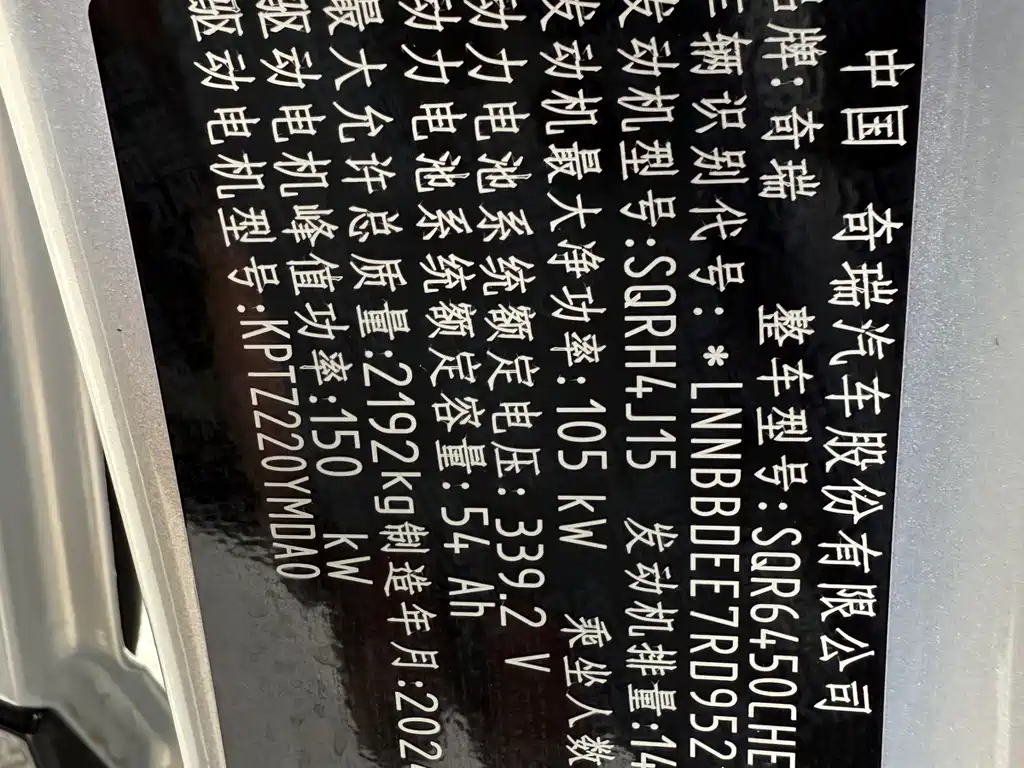 中国 奇瑞汽车股份有限公司
品牌:奇瑞 整车型号:SQR6450CHE
车辆识别代号: *LNNBBDEE7RD952
发动机型号:SQRH4J15 发动机排量:14
发动机最大净功率:105 kW 乘坐人数
动力电池系统额定电压:339.2 V
动力电池系统额定容量:54 Ah
最大允许总质量:2192kg制造年月:202
驱动电机峰值功率:150 kW
驱动电机型号:KPTZ220YMDA0